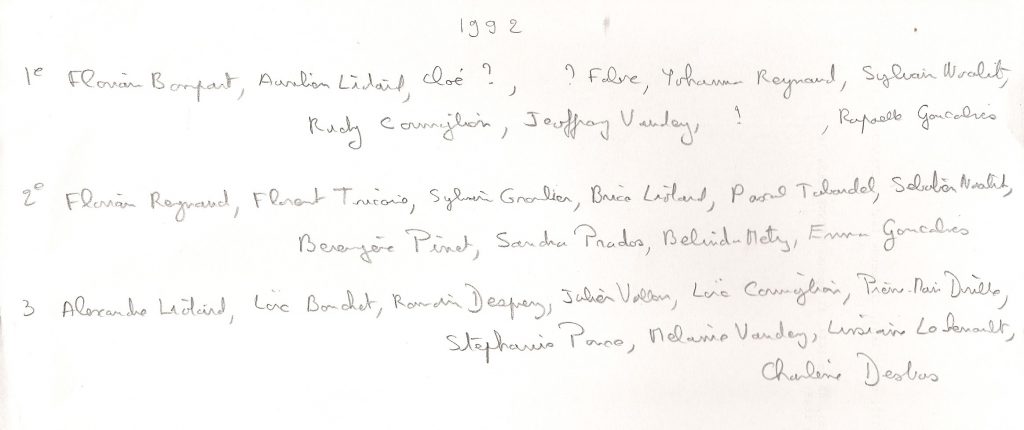 1992
1e Florian Bompart, Aurélien Liotard, Cloé ?, ? Fabre, Yohanna Reynaud, Sylvain
Rudy Corniglion, Jeoffray Vandey, ! , Rapaelle Goncalves
2e Florian Reynaud, Florent Tricorio, Sylvain, Brice Liotard, Pascal Tabardel, Sébastien
Berengère Pinet, Sandra Prados, Belinda Metz, Emma Goncalves
3 Alexandre Liotard, Loïc Bonchet, Romain, Julien Vallon, Loïc Corniglion, Pierre-Marie
Stéphanie Ponce, Mélanie Vandey,
Charlène Desbos